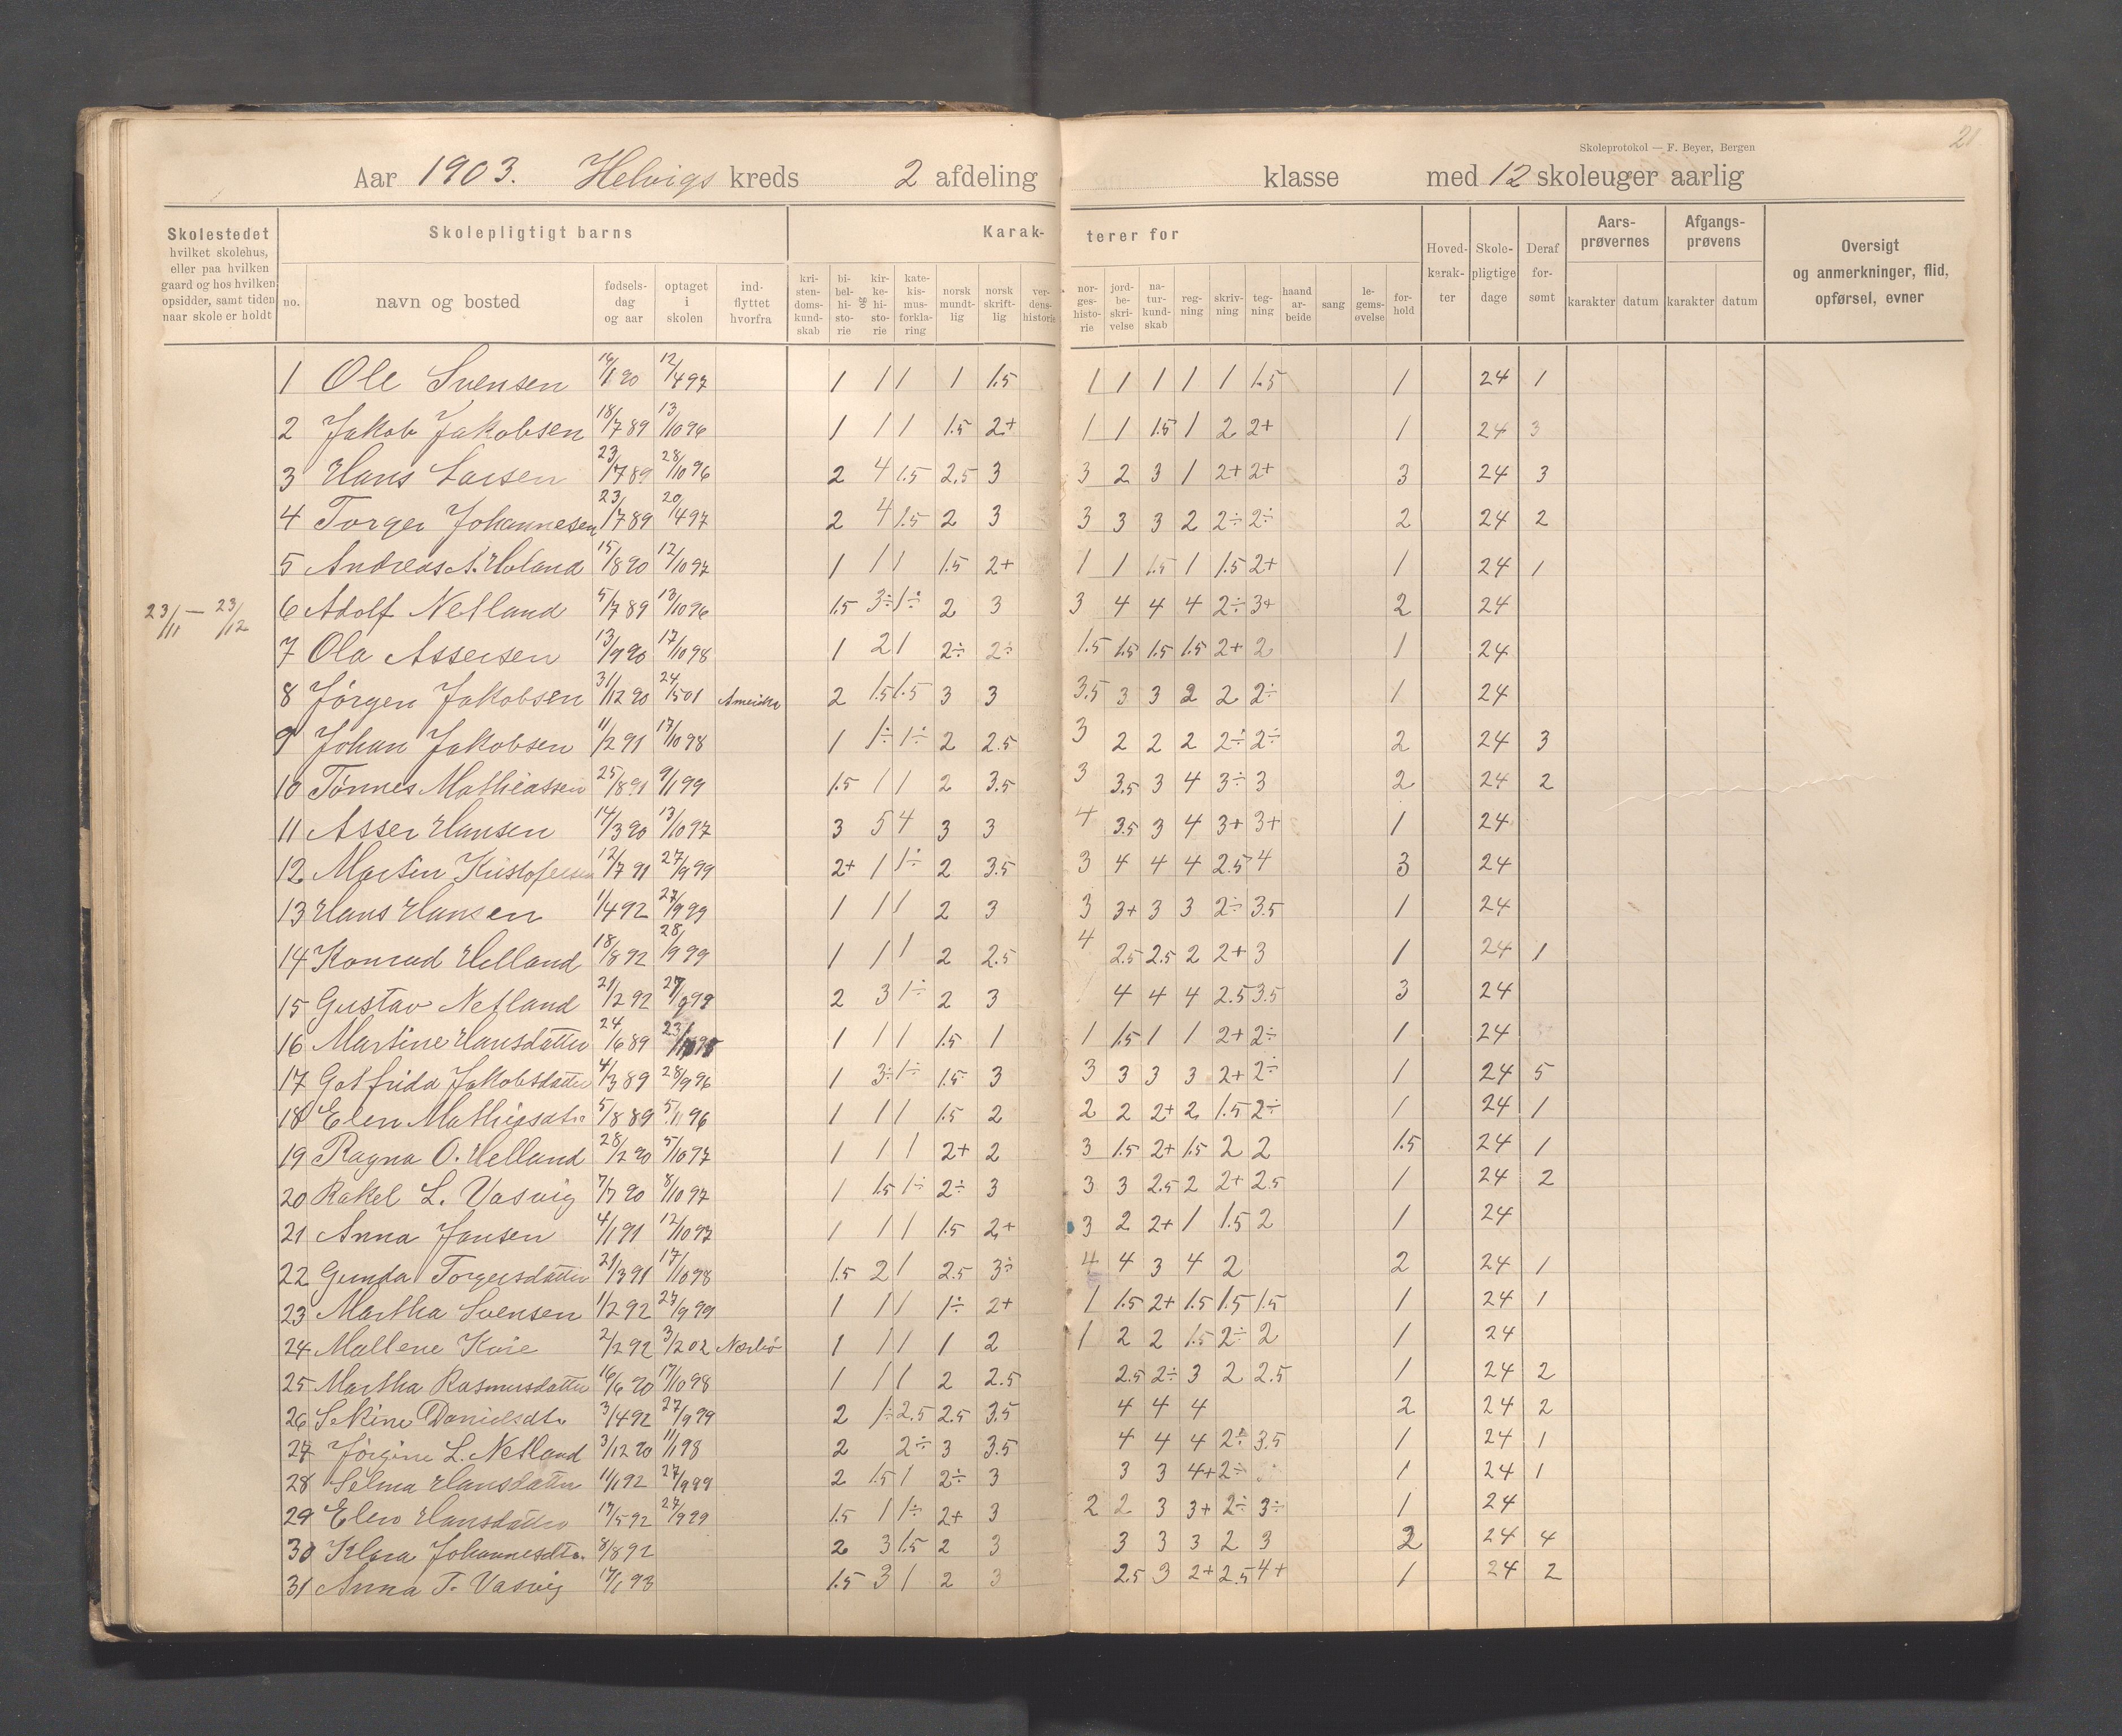 21
Skoleprotokol — F. Beyer, Bergen
Aar 1903. Helvigs kreds 2 afdeling klasse med 12 skoleuger aarlig
Skolestedet hvilket skolehus, eller paa hvilken gaard og hos hvilken opsidder, samt tiden naar skole er holdt
Skolepligtigt barns
no. navn og bosted fødsels-dag og aar optaget i skolen ind-flyttet hvorfra
Karak-terer for
kri-sten-doms-kund-skab bi-bel-hi-sto-rie og kir-ke-hi-sto-rie kate-kis-mus-forkla-ring norsk mundt-lig norsk skrift-lig ver-dens-historie nor-ges-histo-rie jord-be-skri-velse na-tur-kund-skab reg-ning skriv-ning teg-ning haand ar-beide sang le-gems-øvelse for-hold
Hoved-karak-ter Skole-pligtige dage Deraf for-sømt
Aars-prøvernes karakter datum
Afgangs-prøvens karakter datum
Oversigt og anmerkninger, flid, opførsel, evner
1 Ole Svensen 14/1 90 12/4 97 1 1 1 1 1.5 1 1 1 1 1 1.5 1 24 1
2 Jakob Jakobsen 18/7 89 13/10 96 1 1 1 1.5 2+ 1 1 1.5 1 2 2+ 1 24 3
3 Hans Larsen 23/7 89 28/10 96 2 4 1.5 2.5 3 3 2 3 1 2+ 2+ 3 24 3
4 Torger Johannesen 23/7 89 20/4 97 2 4 1.5 2 3 3 3 3 2 2÷ 2÷ 2 24 2
5 Andreas A. Høland 15/8 90 12/10 97 1 1 1 1.5 2+ 1 1 1.5 1 1.5 2+ 1 24 1
23/11 — 23/12
6 Adolf Netland 5/7 89 13/10 96 1.5 3÷ 1÷ 2 3 3 4 4 4 2÷ 3+ 2 24
7 Ola Assersen 13/9 90 17/10 98 1 2 1 2÷ 2÷ 1.5 1.5 1.5 1.5 2+ 2 1 24
8 Jørgen Jakobsen 31/12 90 24/5 01 Amerika 2 1.5 1.5 3 3 3.5 3 3 2 2 2÷ 1 24
9 Johan Jakobsen 11/2 91 17/10 98 1 1÷ 1÷ 2 2.5 3 2 2 2 2÷ 2÷ 2 24 3
10 Tønnes Mathiassen 25/8 91 9/1 99 1.5 1 1 2 3.5 3 3.5 3 4 3÷ 3 2 24 2
11 Asser Hansen 14/3 90 13/10 97 3 5 4 3 3 4 3.5 3 4 3+ 3+ 1 24
12 Martin Kristofersen 12/7 91 27/9 99 2+ 1 1÷ 2 3.5 3 4 4 4 2.5 4 3 24
13 Hans Hansen 1/4 92 27/9 99 1 1 1 2 3 3 3+ 3 3 2÷ 3.5 1 24
14 Konrad Helland 18/8 92 28/9 99 1 1 1 2 2.5 4 2.5 2.5 2 2+ 3 1 24 1
15 Gustav Netland 21/2 92 27/9 99 2 3 1÷ 2 3 4 4 4 2.5 3.5 3 24
16 Martine Hansdatter 24/6 89 1 1 1 1.5 1 1 1.5 1 1 2+ 2÷ 1 24
17 Gotfrida Jakobsdatter 4/3 89 28/9 96 1 3÷ 1÷ 1.5 3 3 3 3 3 2+ 2÷ 1 24 5
18 Elen Mathiasdtr 5/8 89 5/11 96 1 1 1 1.5 2 2 2 2+ 2 1.5 2÷ 1 24 1
19 Ragna O. Helland 28/2 90 5/10 97 1 1 1 2+ 2 3 1.5 2+ 1.5 2 2 1.5 24 1
20 Rakel L. Vasvig 7/7 90 8/10 97 1 1.5 1÷ 2÷ 3 3 3 2.5 2 2+ 2.5 1 24 2
21 Anna Jansen 4/1 91 12/10 97 1 1 1 1.5 2+ 3 2 2+ 1 1.5 2 1 24
22 Gunda Torgersdatter 21/3 91 17/10 98 1.5 2 1 2.5 3÷ 4 4 3 4 2 2 24 1
23 Martha Svensen 1/2 92 27/9 99 1 1 1 1÷ 2+ 1 1.5 2+ 1.5 1.5 1.5 1 24 1
24 Mallene Kvie 2/2 92 3/2 02 Nærbø 1 1 1 1 2 1 2 2 1.5 2÷ 2 1 24
25 Martha Rasmusdatter 16/6 90 17/10 98 1 1 1 2 2.5 2.5 2÷ 3 2 2.5 1 24 2
26 Sekine Danielsdtr 3/4 92 27/9 99 2 1÷ 2.5 2.5 3.5 4 4 4 2 24 2
27 Jørgine L. Netland 3/12 90 11/1 98 2 2÷ 3 3.5 4 4 4 2÷ 3.5 1 24 1
28 Selma Hansdatter 11/1 92 27/9 99 2 1.5 1 2÷ 3 3 3 4+ 2÷ 1 24 1
29 Elen Hansdatter 17/5 92 27/9 99 1.5 1 1÷ 2+ 3 2 2 3 3+ 2÷ 3÷ 1 24
30 Klara Johannesdtr. 8/8 92 2 3 1.5 2 3 3 3 3 2 3 2 24 4
31 Anna T. Vasvig 17/1 93 1.5 3 1 2 3 2.5 3 2+ 2.5 4+ 1 24 2